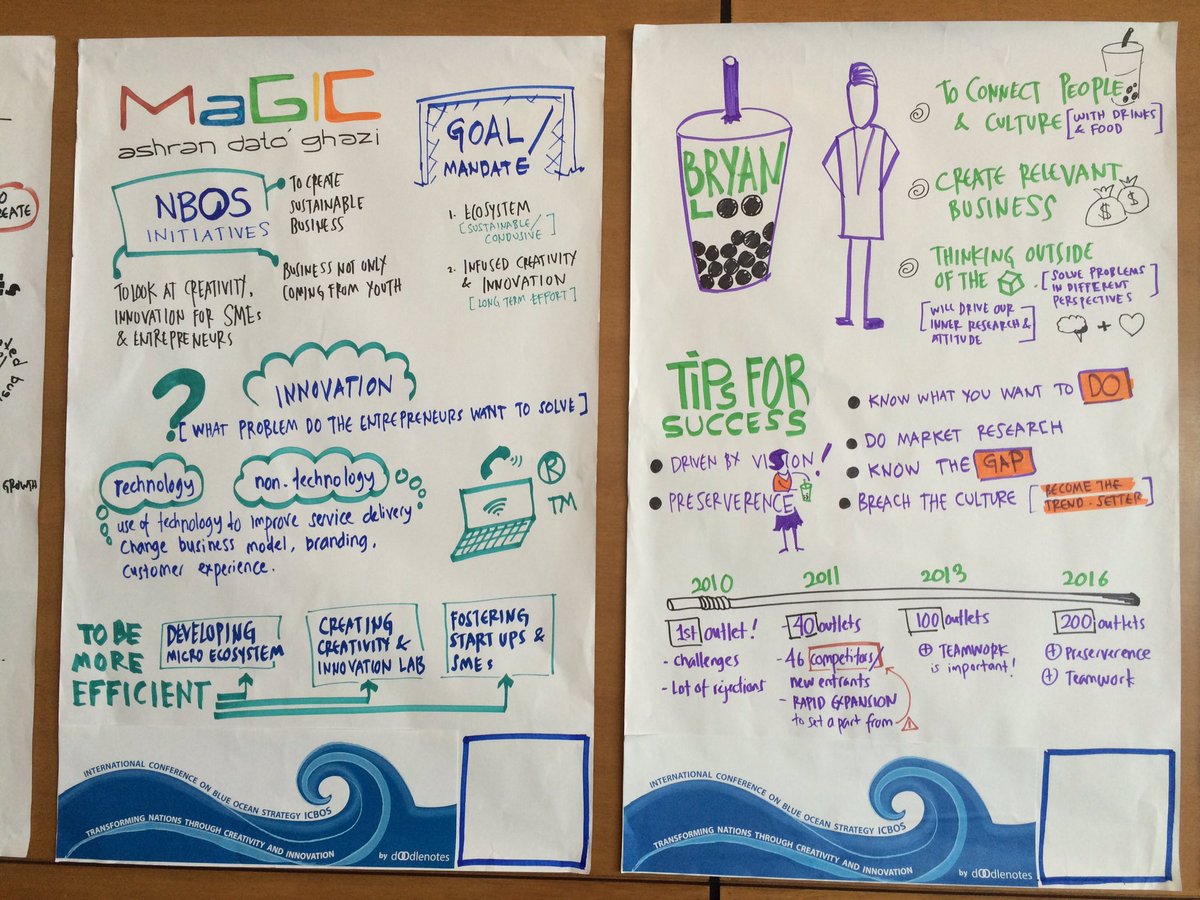 O
EATE
GROWTH
MaGIC
ashran dato' ghazi
GOAL/
MANDATE
NBOS
INITIATIVES
TO CREATE
SUSTAINABLE
BUSINESS
TO LOOK AT CREATIVITY,
INNOVATION FOR SMEs
& ENTREPRENEURS
BUSINESS NOT ONLY
COMING FROM YOUTH
1. ECOSYSTEM
[SUSTAINABLE/
CONDUSIVE]
2. INFUSED CREATIVITY
& INNOVATION
[LONG TERM EFFORT]
?
INNOVATION
[WHAT PROBLEM DO THE ENTREPRENEURS WANT TO SOLVE]
technology
non-technology
use of technology to improve service delivery
Change business model, branding,
customer experience.
®
TM
TO BE
MORE
EFFICIENT
DEVELOPING
MICRO ECOSYSTEM
CREATING
CREATIVITY &
INNOVATION LAB
FOSTERING
START UPS &
SMEs
INTERNATIONAL CONFERENCE ON BLUE OCEAN STRATEGY ICBOS
TRANSFORMING NATIONS THROUGH CREATIVITY AND INNOVATION
by doodlenotes
BRYAN
LOO
TO CONNECT PEOPLE
& CULTURE [WITH DRINKS
& FOOD]
CREATE RELEVANT
BUSINESS
$ $
THINKING OUTSIDE
OF THE
[SOLVE PROBLEMS
IN DIFFERENT
PERSPECTIVES]
[WILL DRIVE OUR
INNER RESEARCH &
ATTITUDE]
+
TIPS FOR
SUCCESS
• DRIVEN BY VISION!
• PRESERVERENCE
• KNOW WHAT YOU WANT TO DO
• DO MARKET RESEARCH
• KNOW THE GAP
• BREACH THE CULTURE [BECOME THE
TREND-SETTER]
2010
1st outlet!
- challenges
- Lot of rejections
2011
- 40 outlets
- 46 competitors/
new entrants
- RAPID EXPANSION
to set a part from
!
2013
100 outlets
+ TEAMWORK
is important!
2016
200 outlets
+ Preserverence
+ Teamwork
INTERNATIONAL CONFERENCE ON BLUE OCEAN STRATEGY ICBOS
TRANSFORMING NATIONS THROUGH CREATIVITY AND INNOVATION
by doodlenotes